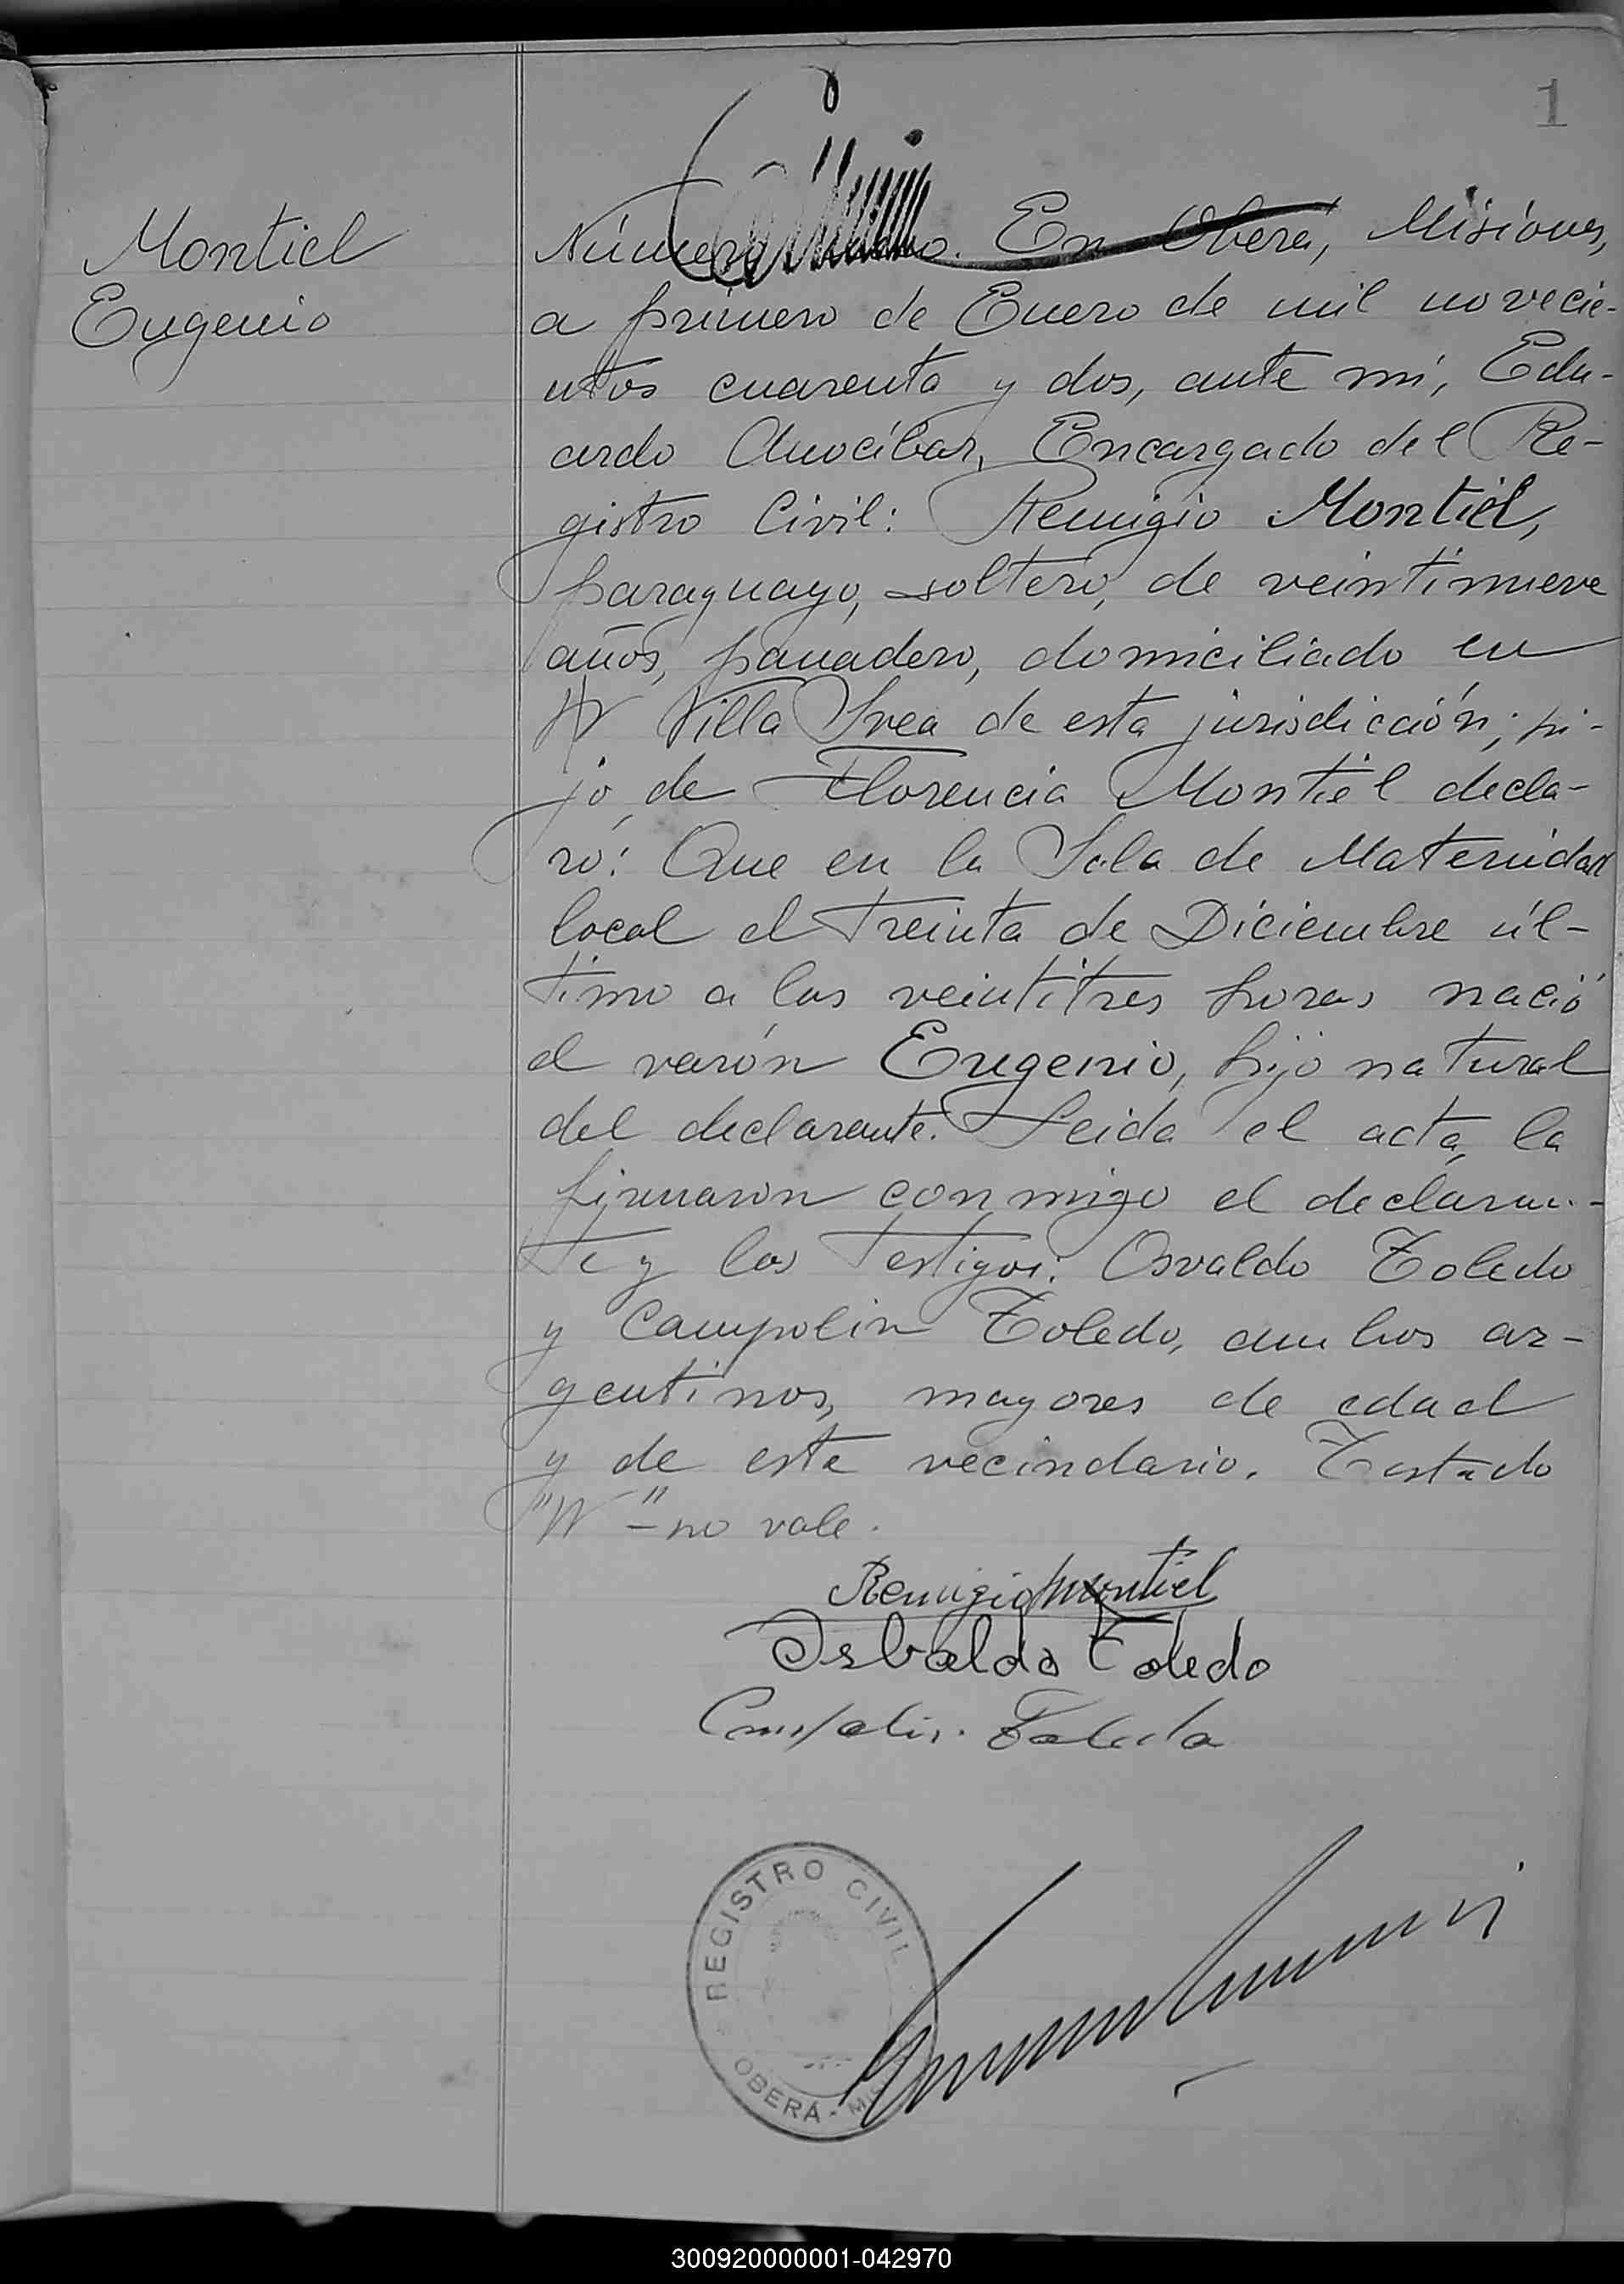 1
Montiel
Eugenio
Número uno. En Oberá, Misiones,
a primero de Enero de mil novecie-
ntos cuarenta y dos, ante mí, Edu-
ardo Anocíbar, Encargado del Re-
gistro Civil: Remigio Montiel,
paraguayo, soltero, de veintinueve
años, panadero, domiciliado en
W Villa Svea de esta jurisdicción; hi-
jo de Florencia Montiel decla-
ró: Que en la Sala de Maternidad
local el treinta de Diciembre úl-
timo a las veintitres horas nació
el varón Eugenio, hijo natural
del declarante. Leida el acta, la
firmaron conmigo el declaran-
te y los testigos: Osvaldo Toledo
y Campolin Toledo, ambos ar-
gentinos, mayores de edad
y de este vecindario. Testado
"W"- no vale.
Remigio Montiel
Osbaldo Toledo
Campolin Toledo
REGISTRO CIVIL
OBERÁ-
300920000001-042970